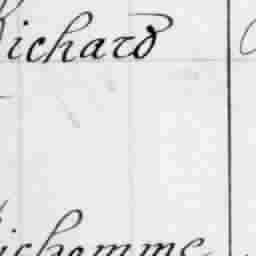 Richard
Richomme